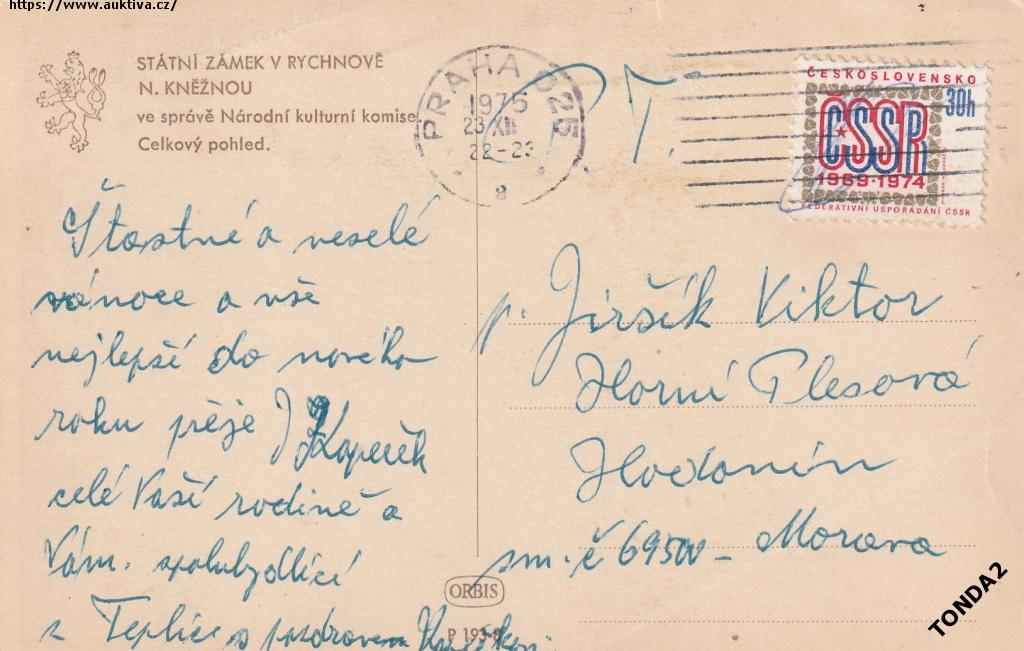 https://www.auktiva.cz/
STÁTNÍ ZÁMEK V RYCHNOVĚ
N. KNĚŽNOU
ve správě Národní kulturní komise.
Celkový pohled.
PRAHA 025
1975
23 XII
22-23
a
P.T.
ČESKOSLOVENSKO
30h
ČSSR
1969-1974
FEDERATIVNÍ USPOŘÁDÁNÍ ČSSR
Šťastné a veselé
vánoce a vše
nejlepší do nového
roku přeje J Kopeček
celé Vaší rodině a
Vám. spolubydlící
z Teplic s pozdravem
p. Jiršík Viktor
Horní Plesová
Hodonín
sm. č 69500 - Morava
ORBIS
TONDA2